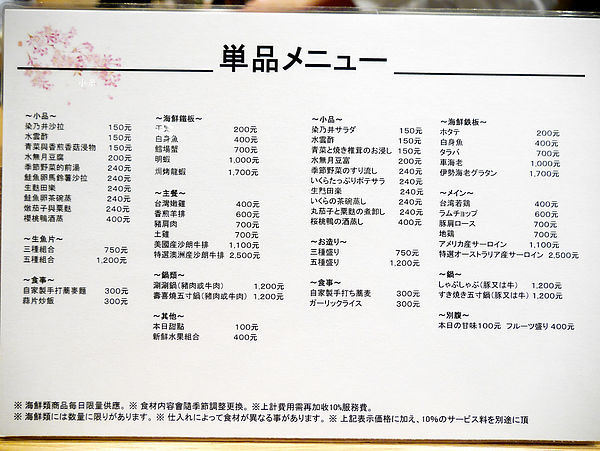 単品メニュー
～小品～
染乃井沙拉 150元
水雲酢 150元
青菜與香煎香菇浸物 150元
水無月豆腐 200元
季節野菜的前湯 240元
鮭魚卵馬鈴薯沙拉 240元
生麩田樂 240元
鮭魚卵茶碗蒸 240元
燉茄子與粟麩 240元
櫻桃鴨酒蒸 400元
～生魚片～
三種組合 750元
五種組合 1,200元
～食事～
自家製手打蕎麥麵 300元
蒜片炒飯 300元
～海鮮鐵板～
200元
白身魚 400元
鱈場蟹 700元
明蝦 1,000元
焗烤龍蝦 1,700元
～主餐～
台灣嫩雞 400元
香煎羊排 600元
豬肩肉 700元
土雞 700元
美國産沙朗牛排 1,100元
特選澳洲産沙朗牛排 2,500元
～鍋類～
涮涮鍋(豬肉或牛肉) 1,200元
壽喜燒五寸鍋(豬肉或牛肉) 1,200元
～其他～
本日甜點 100元
新鮮水果組合 400元
～小品～
染乃井サラダ 150元
水雲酢 150元
青菜と焼き椎茸のお浸し 150元
水無月豆富 200元
季節野菜のすり流し 240元
いくらたっぷりポテサラ 240元
生麩田楽 240元
いくらの茶碗蒸し 240元
丸茄子と粟麩の煮卸し 240元
桜桃鴨の酒蒸し 400元
～お造り～
三種盛り 750元
五種盛り 1,200元
～食事～
自家製手打ち蕎麦 300元
ガーリックライス 300元
～海鮮鉄板～
ホタテ 200元
白身魚 400元
タラバ 700元
車海老 1,000元
伊勢海老グラタン 1,700元
～メイン～
台湾若鶏 400元
ラムチョップ 600元
豚肩ロース 700元
地鶏 700元
アメリカ産サーロイン 1,100元
特選オーストラリア産サーロイン 2,500元
～鍋～
しゃぶしゃぶ(豚又は牛) 1,200元
すき焼き五寸鍋(豚又は牛) 1,200元
～別腹～
本日の甘味100元 フルーツ盛り400元
※ 海鮮類商品每日限量供應。 ※ 食材内容會隨季節調整更換。 ※上計費用需再加收10%服務費。
※ 海鮮類には数量に限りがあります。 ※ 仕入れによって食材が異なる事があります。 ※ 上記表示価格に加え、10%のサービス料を別途に頂